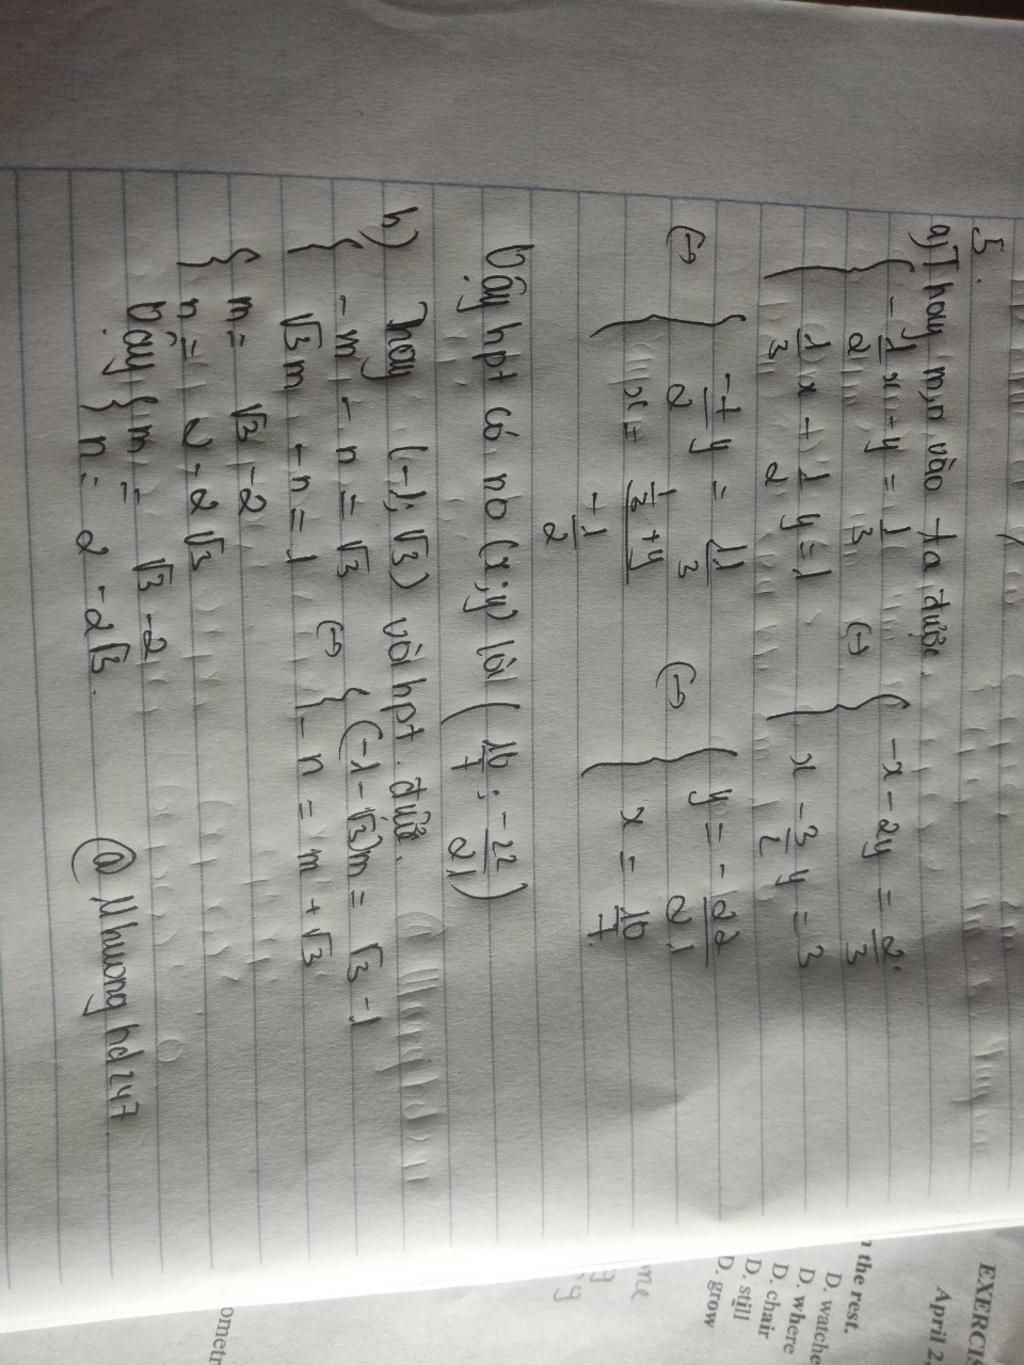 5.
a) Thay m,n vào ta được.
{ -1/2 x - y = 1/3 (→) { -x - 2y = 2/3.
1/3 x + 1/2 y = 1 x - 3/2 y = 3
(→) { -7/2 y = 11/3 (→) { y = - 22/21
x = (1/3 + y)/(-1/2) x = 16/7.
Vậy hpt có no (x;y) là ( 16/7 ; -22/21 )
b) Thay (-1; √3) vào hpt. được.
{ -m - n = √3 (→) { (-1-√3)m = √3 -1
√3 m + n = 1 - n = m + √3
{ m = √3 - 2
n = 2 - 2√3
Vậy { m = √3 - 2
n = 2 - 2√3.
@ Nhuong hd247
EXERCIS
April 2
n the rest.
D. watche
D. where
D. chair
D. still
D. grow
me
g
ng
ometr